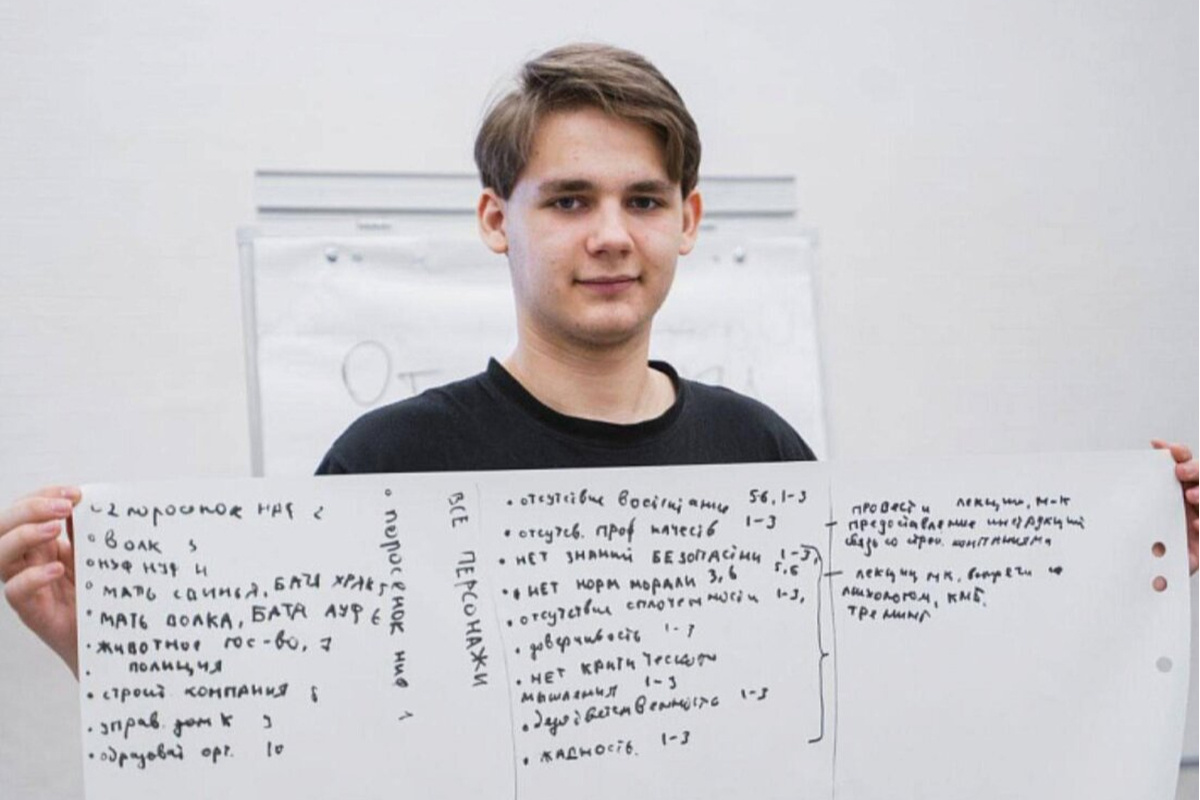 От
2 поросенок НАФ 2
ВОЛК 3
НУФ НУФ 4
МАТЬ СВИНЬЯ, БАТЯ ХРЯК 5
МАТЬ ВОЛКА, БАТЯ АУФ 6
ЖИВОТНОЕ ГОС-ВО, 7
ПОЛИЦИЯ
СТРОИТ. КОМПАНИЯ 8
УПРАВ. ДОМ К 9
ОБРАЗОВАТ ОРГ. 10
ПОРОСЕНОК НИФ 1
ВСЕ ПЕРСОНАЖИ
отсутствие воспитание 56, 1-3
отсутсв. проф качеств 1-3
НЕТ ЗНАНИЙ БЕЗОПАСНИ 1-3,
НЕТ НОРМ МОРАЛИ 3, 6 5,6
отсутствие сплоченности 1-3,
доверчивость 1-3
НЕТ КРИТИЧЕСКОГО
МЫШЛЕНИЯ 1-3
безответственность 1-3
ЖАДНОСТЬ. 1-3
ПРОВЕСТИ ЛЕКЦИЮ, М-К
ПРЕДОСТАВЛЕНИЕ ИНСТРУКЦИЙ
связь со строи. компаниями
ЛЕКЦИИ МК, встречи
психологом, КМБ,
ТРЕНИНГ